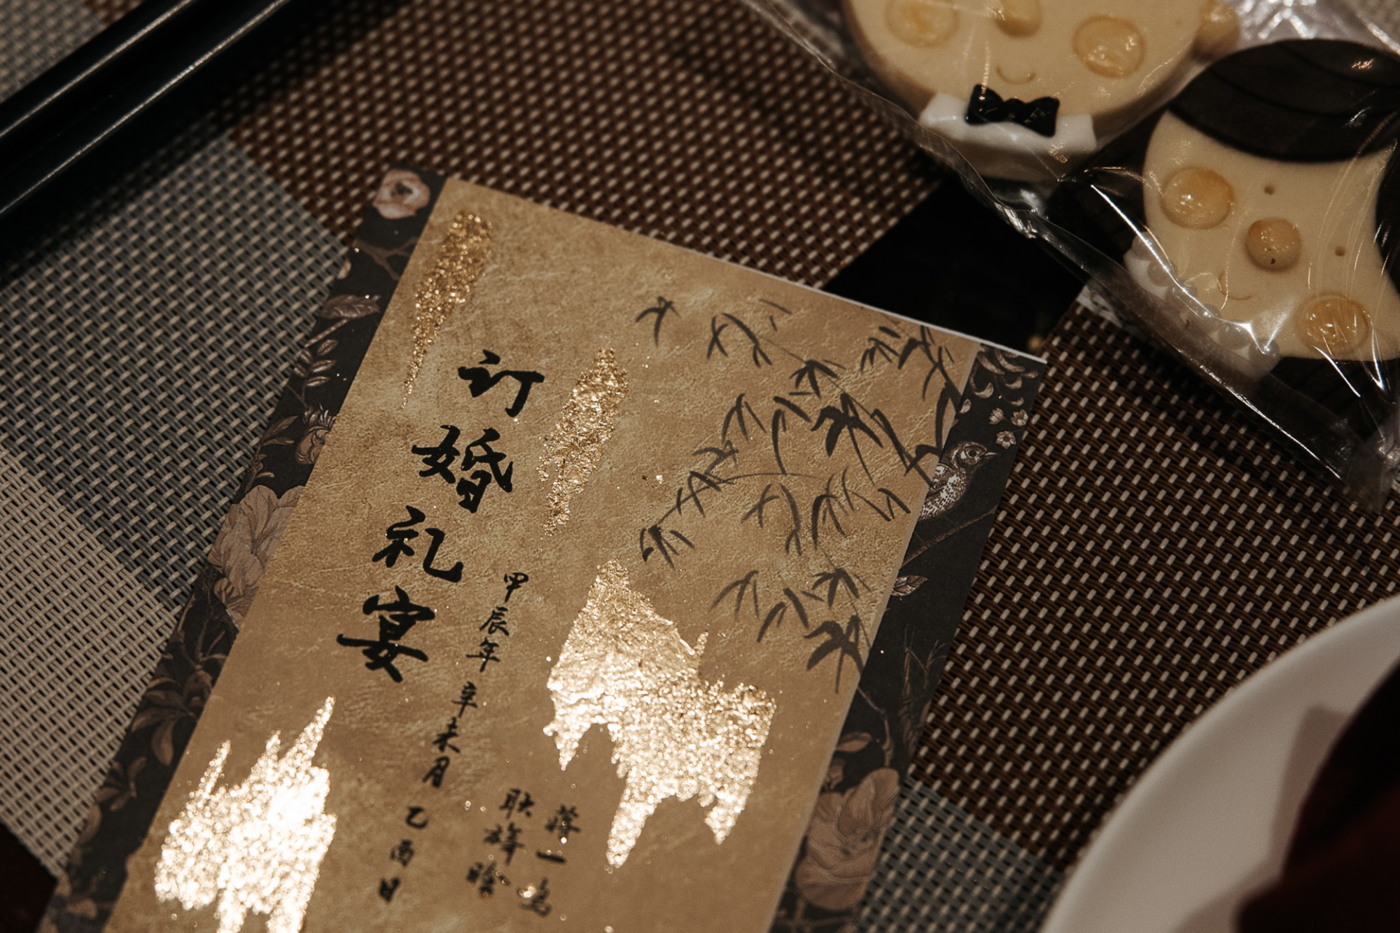 订婚礼宴
甲辰年 辛未月 乙酉日
耿
蒋一